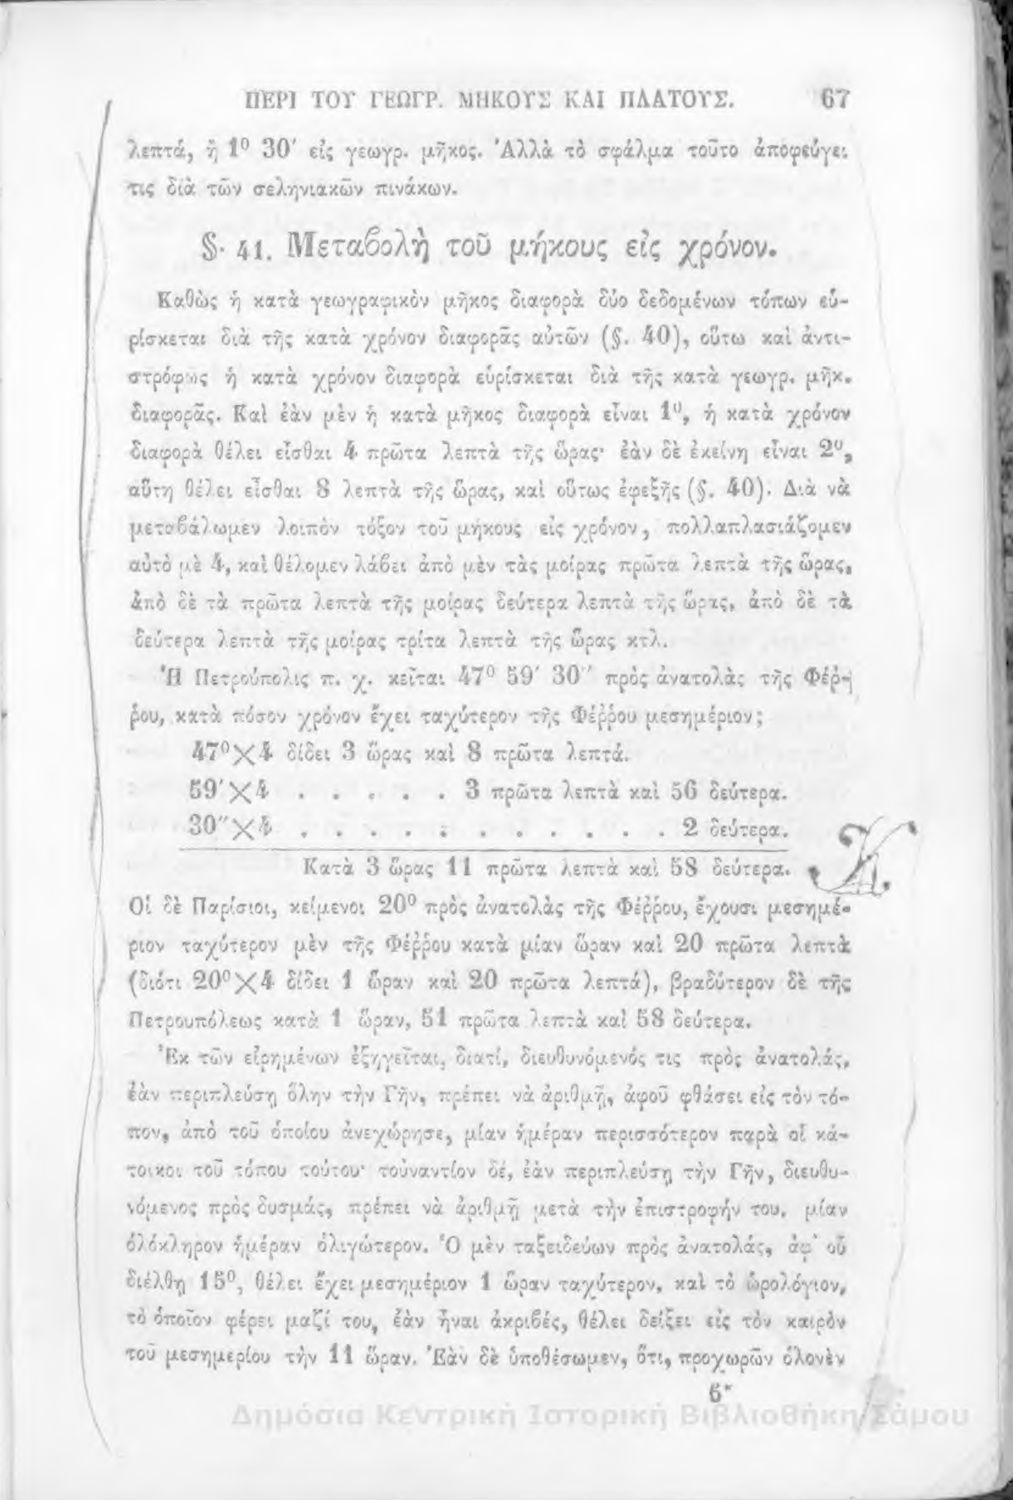 ΠΕΡΙ ΤΟΥ ΓΕΩΓΡ. ΜΗΚΟΥΣ ΚΑΙ ΠΛΑΤΟΥΣ. 67
λεπτά, ἢ 1⁰ 30′ εἰς γεωγρ. μῆκος. Ἀλλὰ τὸ σφάλμα τοῦτο ἀποφεύγει
τις διὰ τῶν σεληνιακῶν πινάκων.
§. 41. Μεταβολὴ τοῦ μήκους εἰς χρόνον.
Καθὼς ἡ κατὰ γεωγραφικὸν μῆκος διαφορὰ δύο δεδομένων τόπων εὑ-
ρίσκεται διὰ τῆς κατὰ χρόνον διαφορᾶς αὐτῶν (§. 40), οὕτω καὶ ἀντι-
στρόφως ἡ κατὰ χρόνον διαφορὰ εὑρίσκεται διὰ τῆς κατὰ γεωγρ. μῆκ.
διαφορᾶς. Καὶ ἐὰν μὲν ἡ κατὰ μῆκος διαφορὰ εἶναι 1⁰, ἡ κατὰ χρόνον
διαφορὰ θέλει εἶσθαι 4 πρῶτα λεπτὰ τῆς ὥρας· ἐὰν δὲ ἐκείνη εἶναι 2⁰,
αὕτη θέλει εἶσθαι 8 λεπτὰ τῆς ὥρας, καὶ οὕτως ἐφεξῆς (§. 40). Διὰ νὰ
μεταβάλωμεν λοιπὸν τόξον τοῦ μήκους εἰς χρόνον, πολλαπλασιάζομεν
αὐτὸ μὲ 4, καὶ θέλομεν λάβει ἀπὸ μὲν τὰς μοίρας πρῶτα λεπτὰ τῆς ὥρας,
ἀπὸ δὲ τὰ πρῶτα λεπτὰ τῆς μοίρας δεύτερα λεπτὰ τῆς ὥρας, ἀπὸ δὲ τὰ
δεύτερα λεπτὰ τῆς μοίρας τρίτα λεπτὰ τῆς ὥρας κτλ.
Ἡ Πετρούπολις π. χ. κεῖται 47⁰ 59′ 30″ πρὸς ἀνατολὰς τῆς Φέρ-
ρου, κατὰ πόσον χρόνον ἔχει ταχύτερον τῆς Φέῤῥου μεσημέριον;
47⁰×4 δίδει 3 ὥρας καὶ 8 πρῶτα λεπτά.
59′×4 . . . . . 3 πρῶτα λεπτὰ καὶ 56 δεύτερα.
30″×4 . . . . . . . . . . . 2 δεύτερα.
Κατὰ 3 ὥρας 11 πρῶτα λεπτὰ καὶ 58 δεύτερα.
Οἱ δὲ Παρίσιοι, κείμενοι 20⁰ πρὸς ἀνατολὰς τῆς Φέῤῥου, ἔχουσι μεσημέ-
ριον ταχύτερον μὲν τῆς Φέῤῥου κατὰ μίαν ὥραν καὶ 20 πρῶτα λεπτὰ
(διότι 20⁰×4 δίδει 1 ὥραν καὶ 20 πρῶτα λεπτά), βραδύτερον δὲ τῆς
Πετρουπόλεως κατὰ 1 ὥραν, 51 πρῶτα λεπτὰ καὶ 58 δεύτερα.
Ἐκ τῶν εἰρημένων ἐξηγεῖται, διατί, διευθυνόμενός τις πρὸς ἀνατολάς,
ἐὰν περιπλεύσῃ ὅλην τὴν Γῆν, πρέπει νὰ ἀριθμῇ, ἀφοῦ φθάσει εἰς τὸν τό-
πον, ἀπὸ τοῦ ὁποίου ἀνεχώρησε, μίαν ἡμέραν περισσότερον παρὰ οἱ κά-
τοικοι τοῦ τόπου τούτου· τοὐναντίον δέ, ἐὰν περιπλεύσῃ τὴν Γῆν, διευθυ-
νόμενος πρὸς δυσμάς, πρέπει νὰ ἀριθμῇ μετὰ τὴν ἐπιστροφήν του, μίαν
ὁλόκληρον ἡμέραν ὀλιγώτερον. Ὁ μὲν ταξειδεύων πρὸς ἀνατολάς, ἀφ᾽ οὗ
διέλθῃ 15⁰, θέλει ἔχει μεσημέριον 1 ὥραν ταχύτερον, καὶ τὸ ὡρολόγιον,
τὸ ὁποῖον φέρει μαζί του, ἐὰν ἦναι ἀκριβές, θέλει δείξει εἰς τὸν καιρὸν
τοῦ μεσημερίου τὴν 11 ὥραν. Ἐὰν δὲ ὑποθέσωμεν, ὅτι, προχωρῶν ὁλονὲν
5*
Δημόσια Κεντρική Ιστορική Βιβλιοθήκη Σάμου